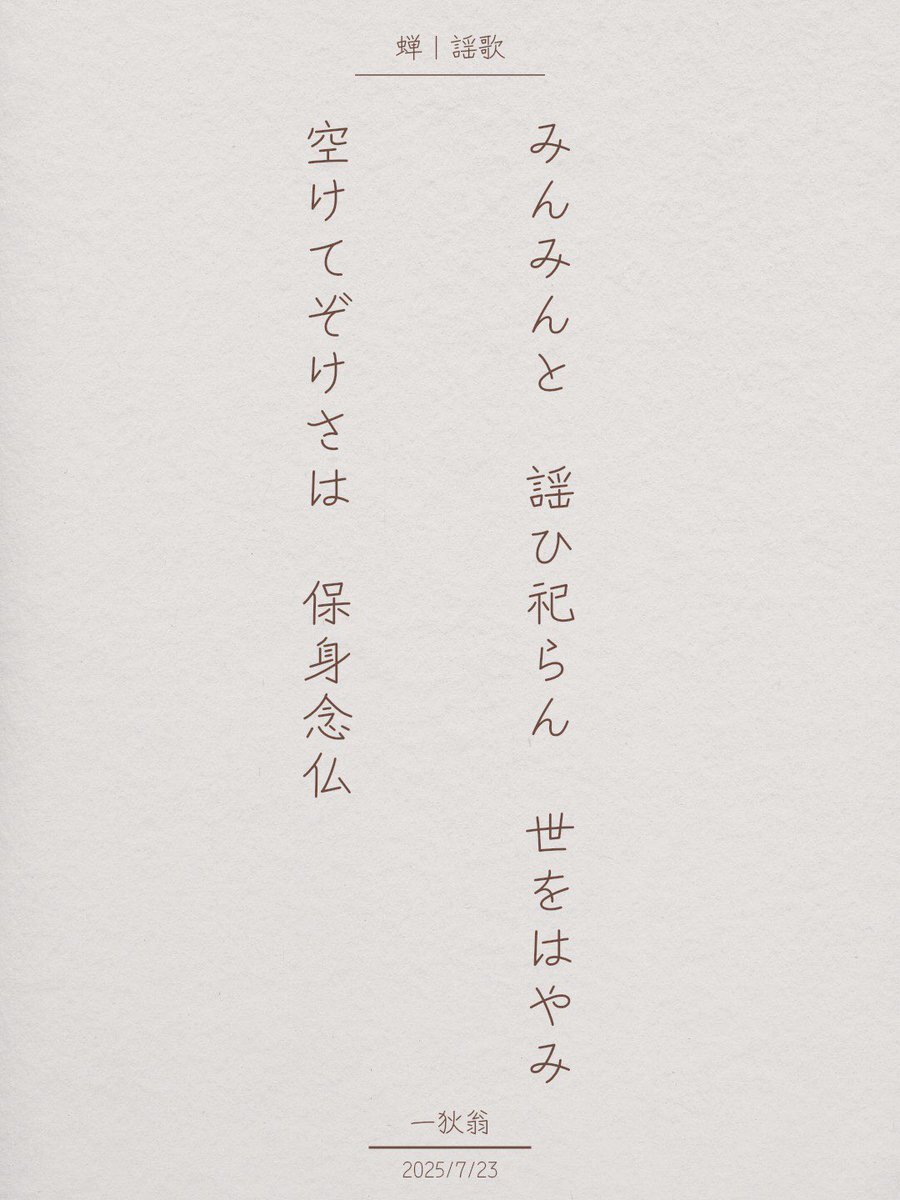 蝉｜謡歌
みんみんと　謡ひ祀らん　世をはやみ
空けてぞけさは　保身念仏
一狄翁
2025/7/23